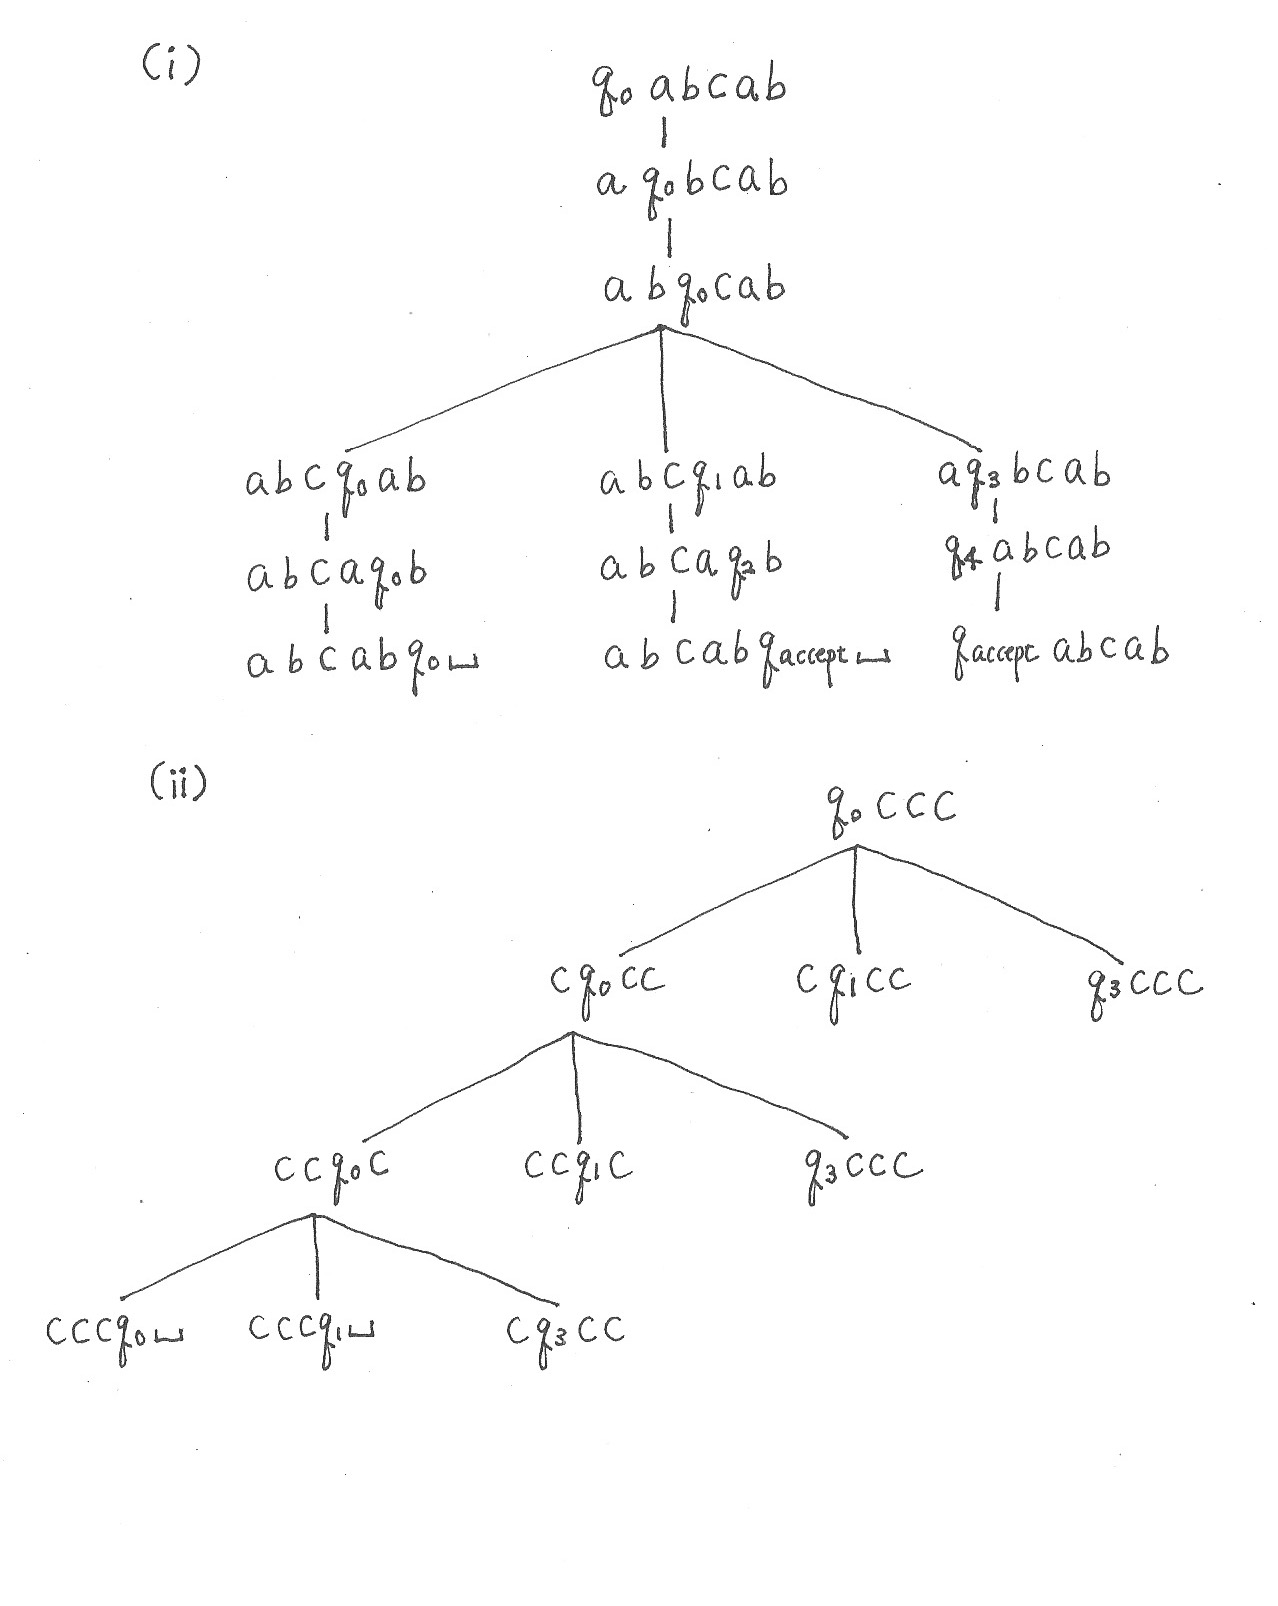 (i)
q₀ a b c a b
a q₀ b c a b
a b q₀ c a b
a b c q₀ a b a b c q₁ a b a q₃ b c a b
a b c a q₀ b a b c a q₂ b q₄ a b c a b
a b c a b q₀ ⊔ a b c a b q accept ⊔ q accept a b c a b
(ii)
q₀ c c c
c q₀ c c c q₁ c c q₃ c c c
c c q₀ c c c q₁ c q₃ c c c
c c c q₀ ⊔ c c c q₁ ⊔ c q₃ c c